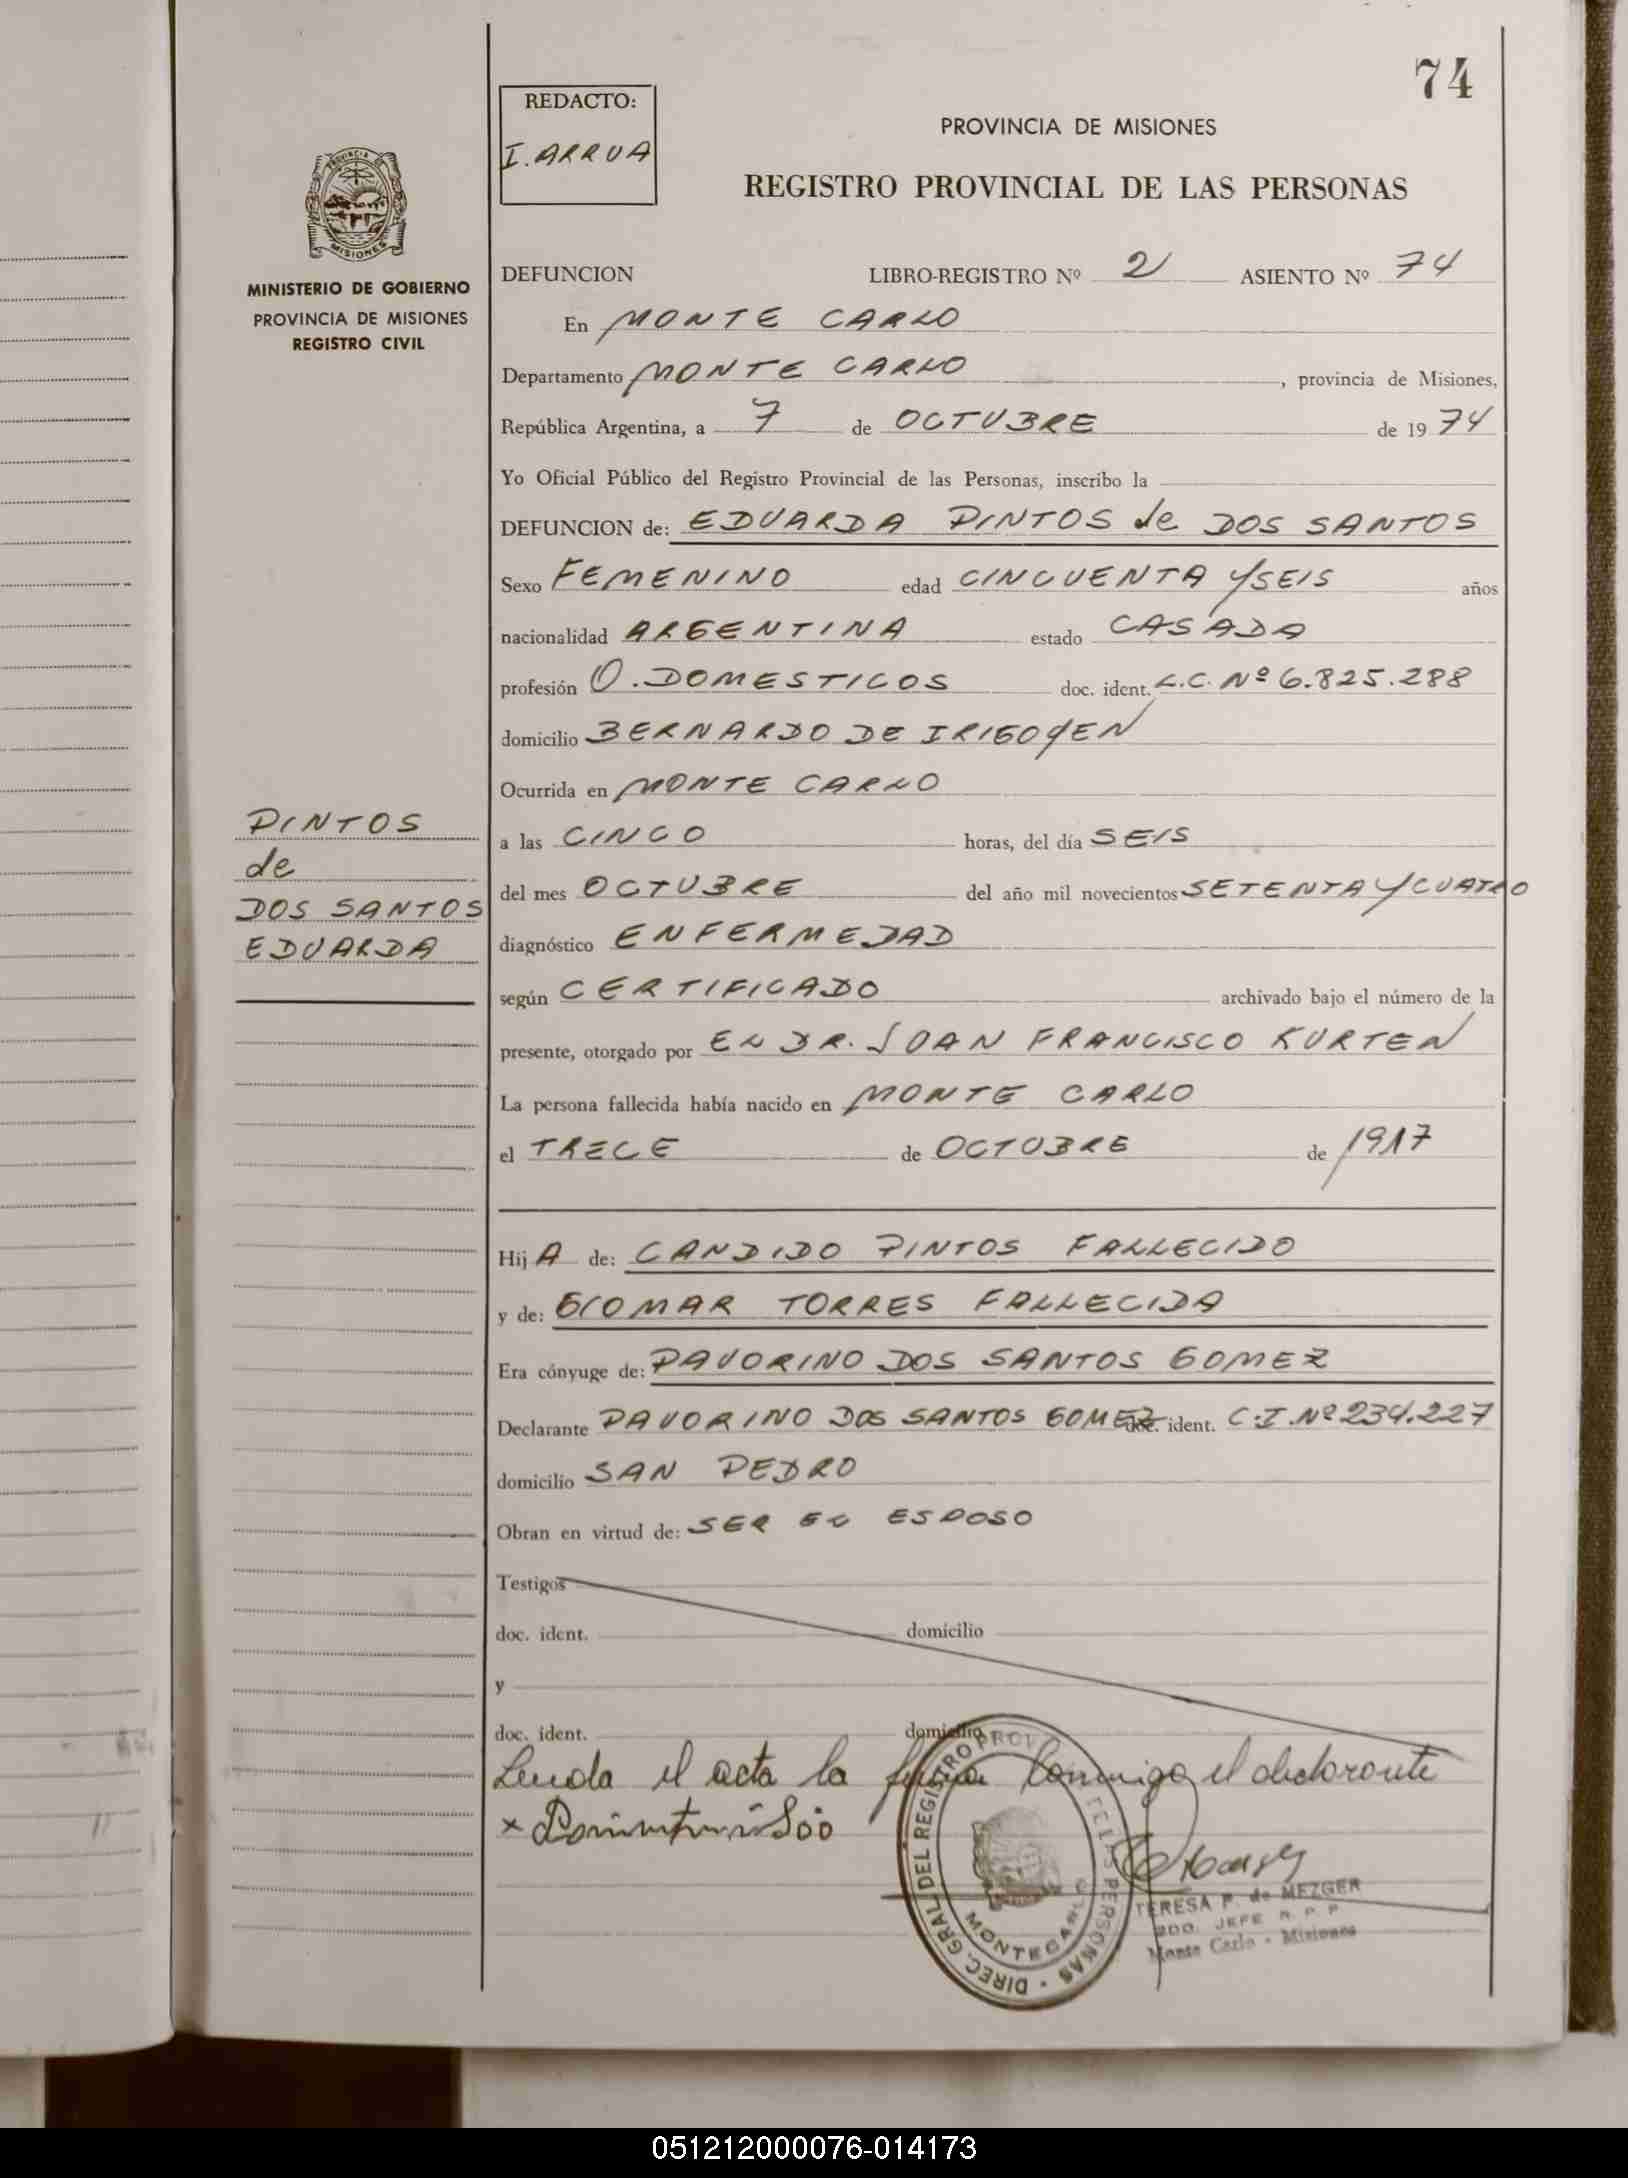 74
REDACTO:
I. ARRUA
PROVINCIA DE MISIONES
REGISTRO PROVINCIAL DE LAS PERSONAS
PROVINCIA DE
MISIONES
MINISTERIO DE GOBIERNO
PROVINCIA DE MISIONES
REGISTRO CIVIL
DEFUNCION LIBRO-REGISTRO Nº 2 ASIENTO Nº 74
En MONTE CARLO
Departamento MONTE CARLO, provincia de Misiones,
República Argentina, a 7 de OCTUBRE de 1974
Yo Oficial Público del Registro Provincial de las Personas, inscribo la
DEFUNCION de: EDUARDA PINTOS de DOS SANTOS
Sexo FEMENINO edad CINCUENTA Y SEIS años
nacionalidad ARGENTINA estado CASADA
profesión O. DOMESTICOS doc. ident. L.C. Nº 6.825.288
domicilio BERNARDO DE IRIGOYEN
Ocurrida en MONTE CARLO
a las CINCO horas, del día SEIS
del mes OCTUBRE del año mil novecientos SETENTA Y CUATRO
diagnóstico ENFERMEDAD
según CERTIFICADO archivado bajo el número de la
presente, otorgado por EL DR. JUAN FRANCISCO KURTEN
La persona fallecida había nacido en MONTE CARLO
el TRECE de OCTUBRE de 1917
PINTOS
de
DOS SANTOS
EDUARDA
Hij A de: CANDIDO PINTOS FALLECIDO
y de: GIOMAR TORRES FALLECIDA
Era cónyuge de: PAVORINO DOS SANTOS GOMEZ
Declarante PAVORINO DOS SANTOS GOMEZ doc. ident. C.I. Nº 234.227
domicilio SAN PEDRO
Obran en virtud de: SER EL ESPOSO
Testigos
doc. ident. domicilio
y
doc. ident. domicilio
Leida el acta la firma conmigo el declarante
x
DIREC. GRAL. DEL REGISTRO PROV. DE LAS PERSONAS
MONTECARLO
TERESA P. de MEZGER
2DO. JEFE R. P. P.
Monte Carlo - Misiones
051212000076-014173